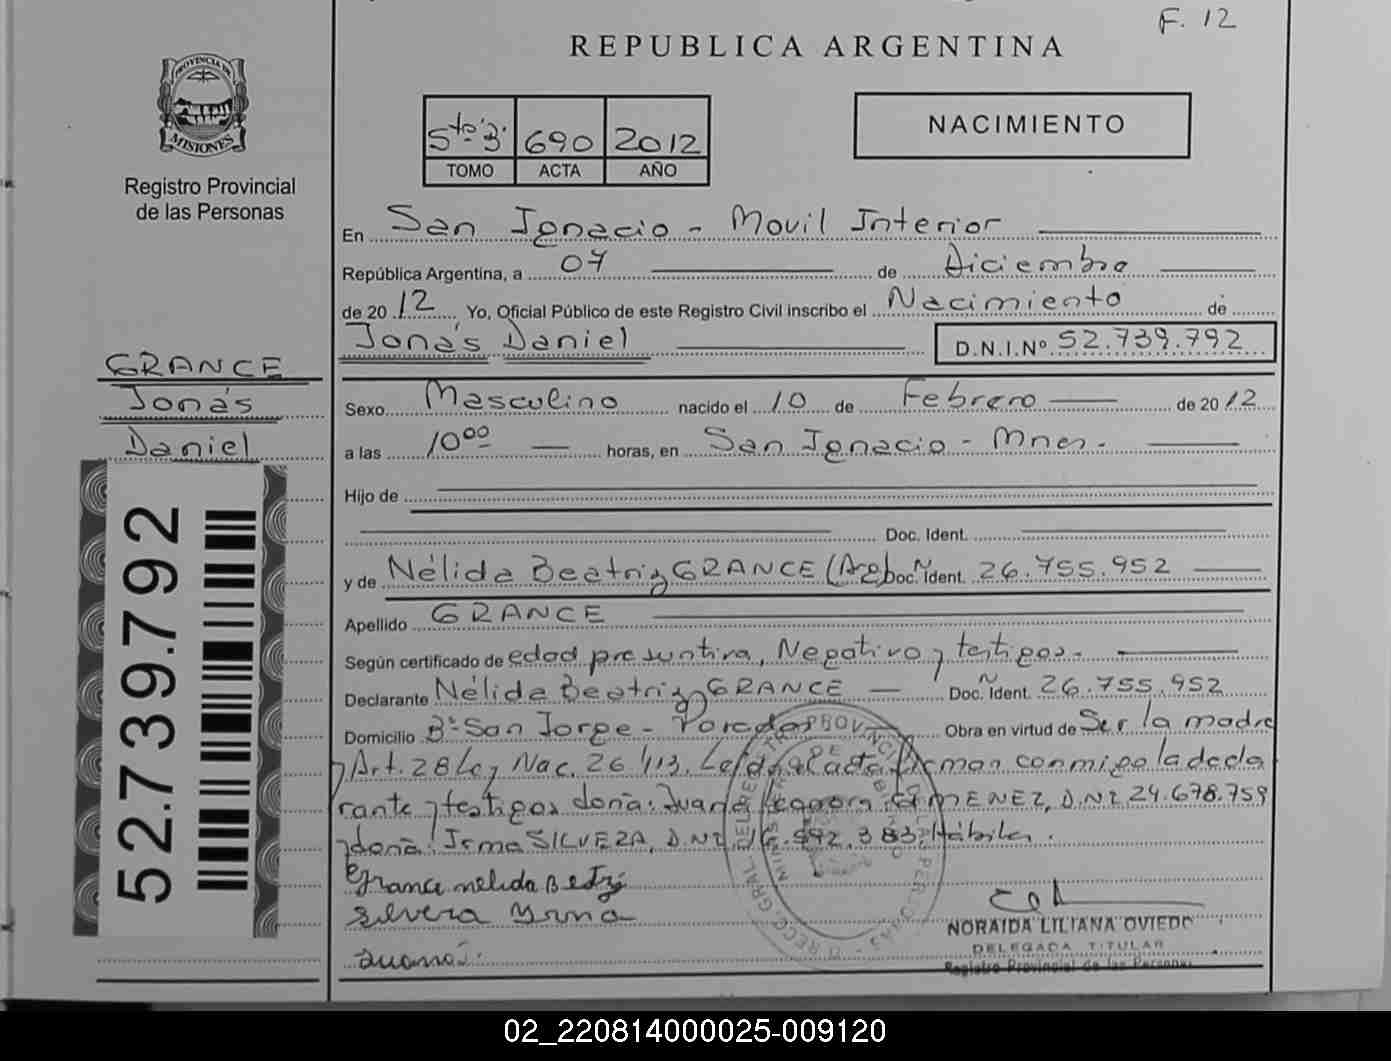 F. 12
REPUBLICA ARGENTINA
PROVINCIA DE
MISIONES
Registro Provincial
de las Personas
5to "B" 690 2012
TOMO ACTA AÑO
NACIMIENTO
En San Ignacio - Movil Interior
República Argentina, a 07 de Diciembre
de 2012 Yo, Oficial Público de este Registro Civil inscribo el Nacimiento de
Jonás Daniel D.N.I.Nº 52.739.792
GRANCE
Jonás
Daniel
52.739.792
Sexo Masculino nacido el 10 de Febrero de 2012
a las 1000 horas, en San Ignacio - Mnes.
Hijo de
Doc. Ident.
y de Nélida Beatriz GRANCE (Arg) Doc. Ident. 26.755.952
Apellido GRANCE
Según certificado de edad presuntiva, Negativo y testigos.
Declarante Nélida Beatriz GRANCE Doc. Ident. 26.755.952
Domicilio Bº San Jorge - Obra en virtud de Ser la madre
y Art. 28 Ley Nac. 26.413. Leída el acta firman conmigo la decla
rante y testigos doña: Juana DNI 24.678.759
y doña: Irma SILVERA, DNI 383, Hábiles.
Grance nelida
Silvera Yrma
NORAIDA LILIANA OVIEDO
DELEGADA TITULAR
Registro Provincial de las Personas
02_220814000025-009120